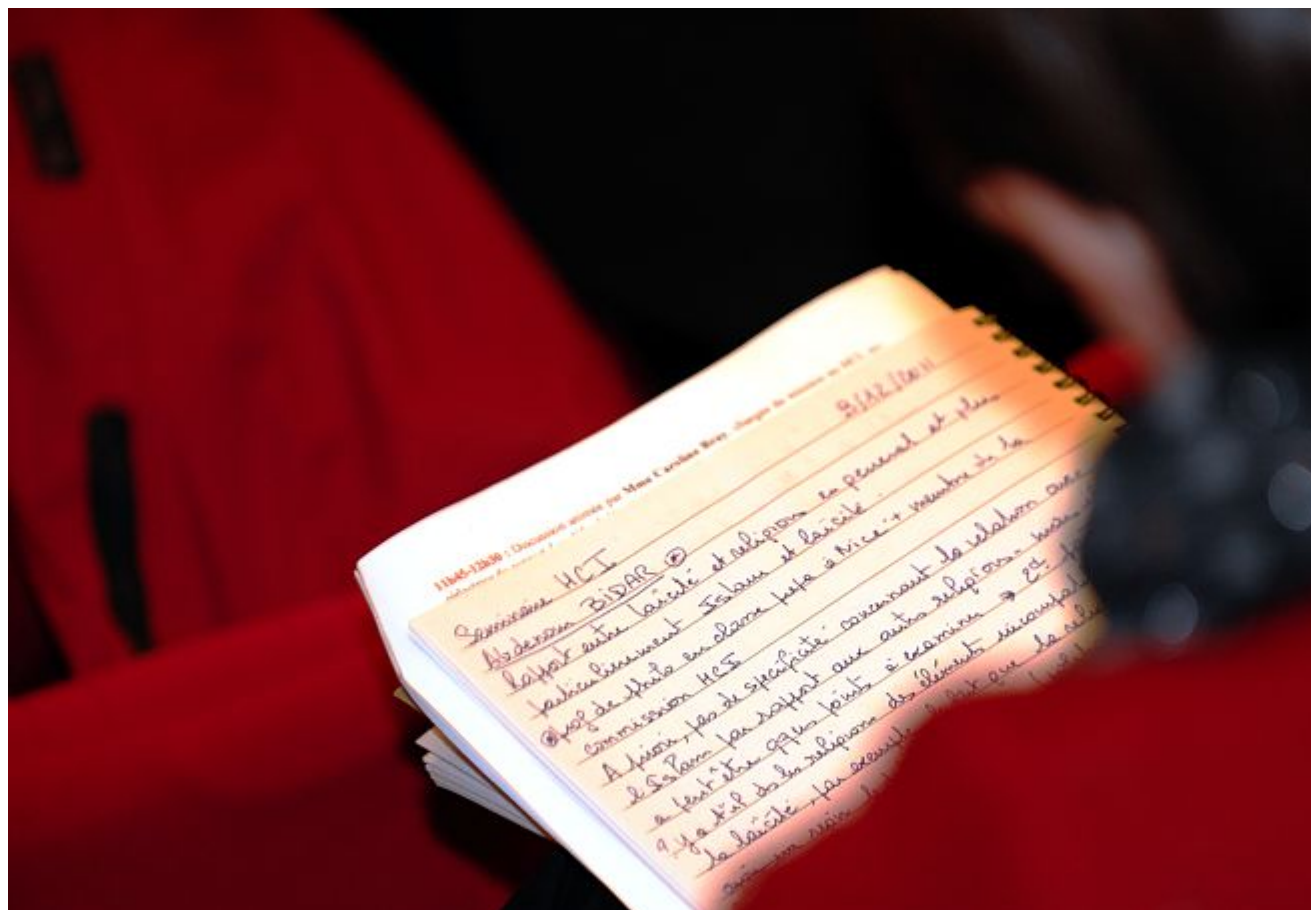 11h45-12h30 : Discussion animée par Mme Caroline Bray, chargée de mission au HCI
9/12/2011
Séminaire HCI
Abdenour BiDAR ⊛
Rapport entre laïcité et religions en general et plus
particulièrement Islam et laïcité.
⊛ prof de philo en classe prépa à Nice + membre de la
commission HCI
A priori, pas de spécificité concernant la relation avec
l'Islam par rapport aux autres religions - mais
a peut être qques points à examiner →
? Y a t'il ds les religions des éléments
la laïcité, par exemple